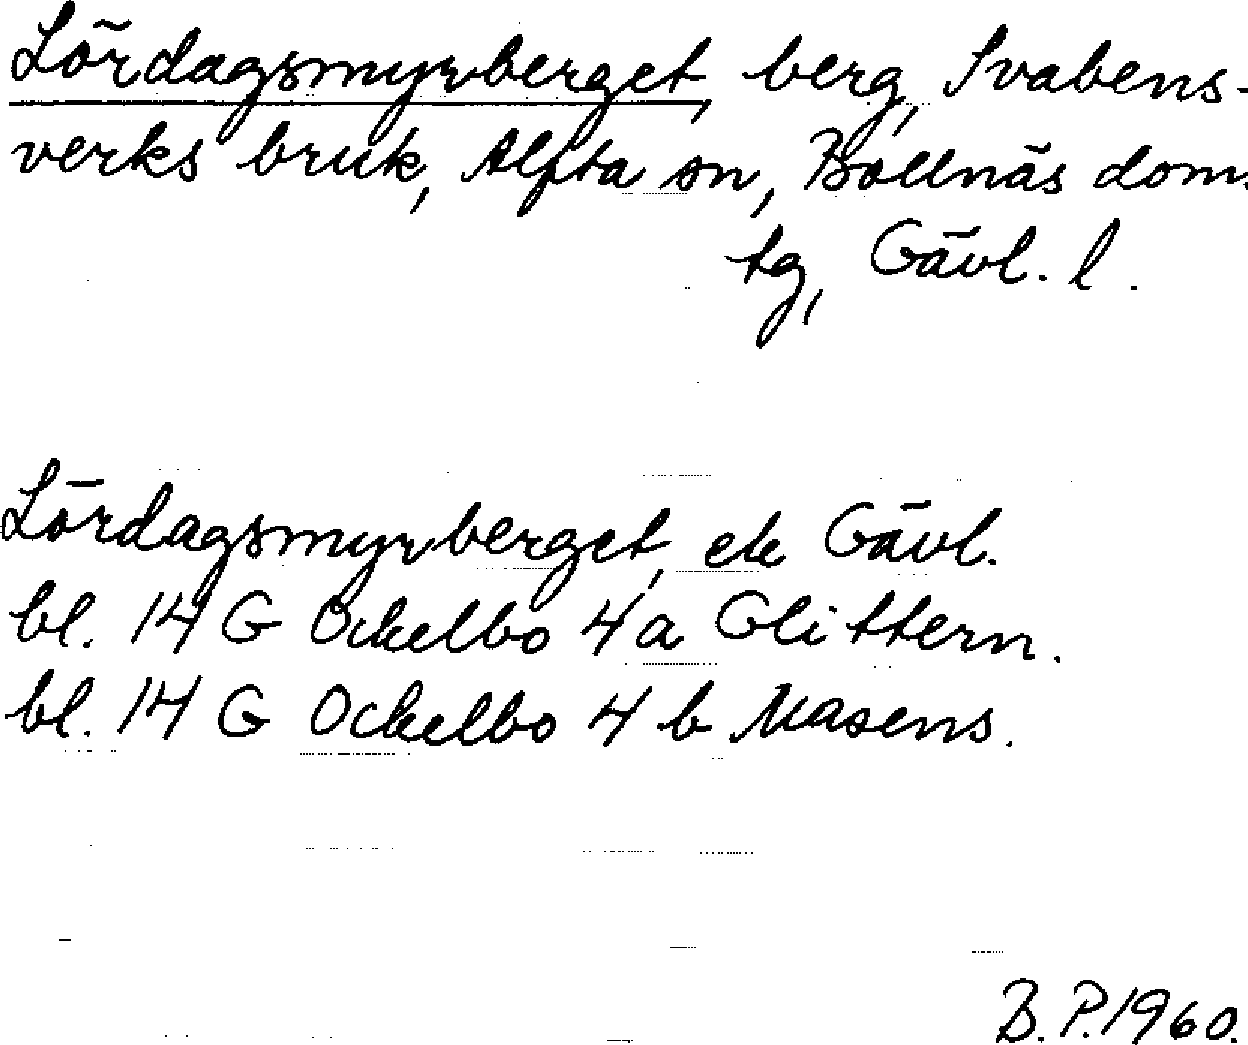 Lördagsmyrberget, berg, Svabens-
verks bruk, Alfta sn, Bollnäs doms
tg, Gävl. l.
Lördagsmyrberget, ek Gävl.
bl. 14 G Ockelbo 4 a Glittern.
bl. 14 G Ockelbo 4 b Masens.
B. P. 1960.